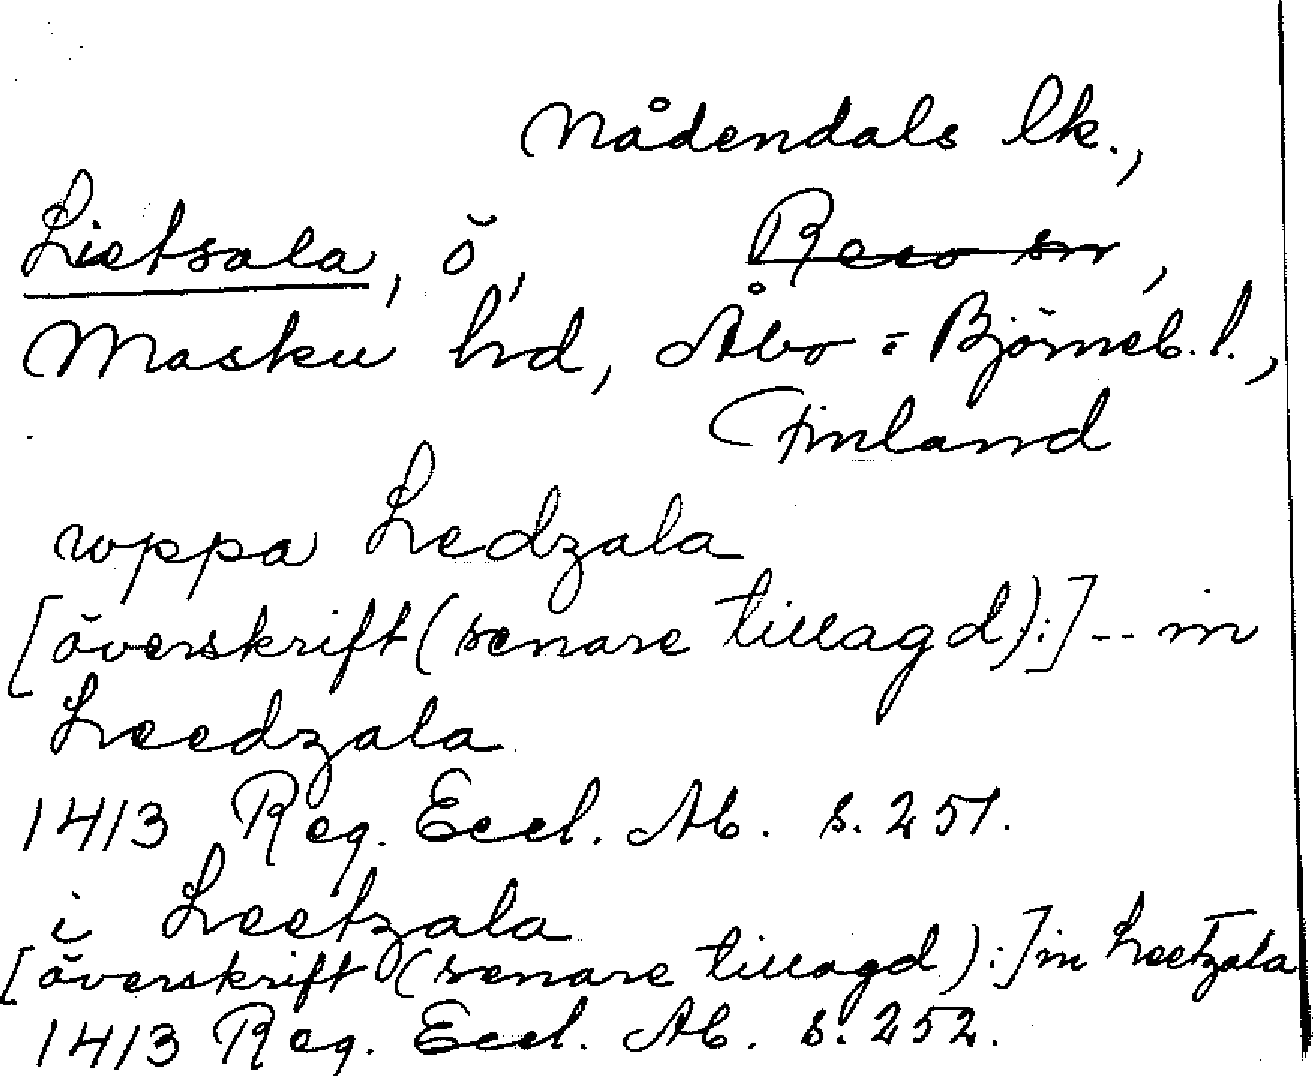 Nådendals lk.,
Lietsala, ö, Reso sn,
Masku hd, Åbo = Björneb. l.,
Finland
wppa Ledzala
[överskrift (senare tillagd):] -- in
Leedzala
1413 Reg. Eccl. Ab. s. 251.
i Leetzala
[överskrift (senare tillagd):] in Leetzala
1413 Reg. Eccl. Ab. s. 252.